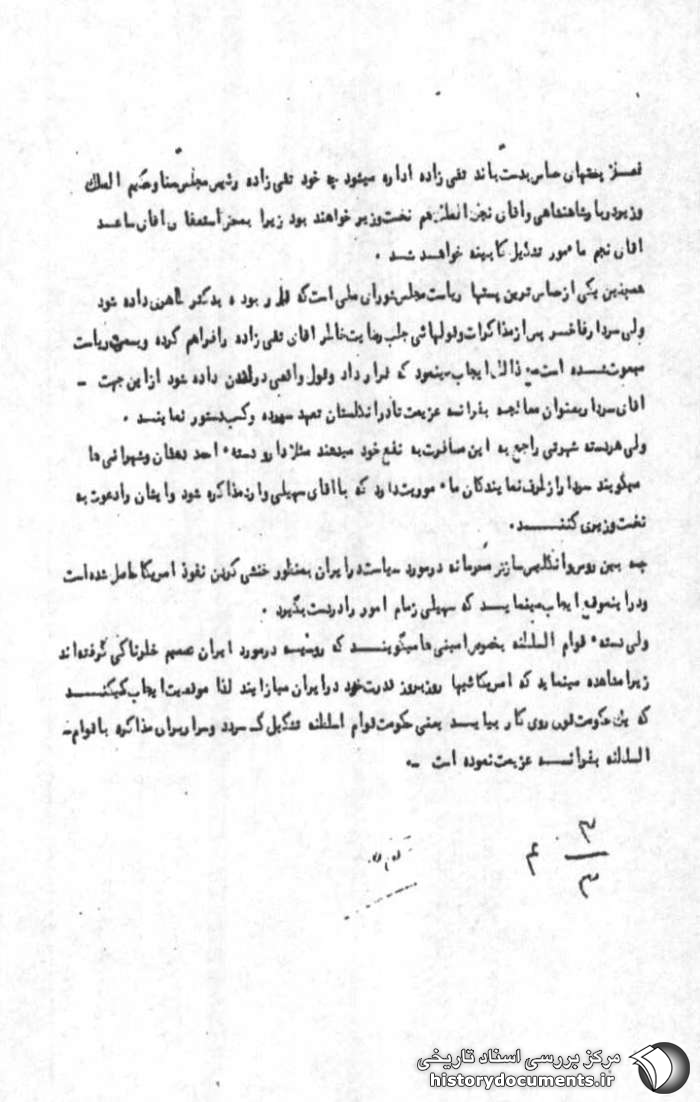 فعلا پستهای حساس بدست باند تقی زاده اداره میشود چه خود تقی زاده رئیس مجلس سنا و حکیم الملک
وزیر دربار شاهنشاهی و آقای نجم الملک هم نخست وزیر خواهند بود زیرا بمحض استعفای آقای ساعد
آقای نجم مأمور تشکیل کابینه خواهد شد .
همچنین یکی از حساس ترین پستها ریاست مجلس شورای ملی است که قرار بود به دکتر طاهری داده شود
ولی سردار فاخر پس از مذاکرات و قولهائی جلب رضایت خاطر آقای تقی زاده را فراهم کرده و بسمت ریاست
مبعوث شده است مع ذالک ایجاب مینمود که قرار داد و قول واقعی در لندن داده شود از این جهت -
آقای سردار بعنوان معالجه بفرانسه عزیمت تا در انگلستان تعهد سپرده و کسب دستور نمایند .
ولی هر دسته شهرتی راجع به این مسافرت به نفع خود میدهند مثلا دارو دسته احمد دهقان و شهرامی ها
میگویند سردار از طرف نمایندگان مأموریت دارد که با آقای سهیلی وارد مذاکره شود و ایشان را دعوت به
نخست وزیری کنند .
چه بین روس و انگلیس سازش محرمانه در مورد سیاست در ایران بمنظور خنثی کردن نفوذ امریکا حاصل شده است
و در اینموقع ایجاب مینماید که سهیلی زمام امور را در دست بگیرد .
ولی دسته قوام السلطنه بخصوص امینی ها میگویند که روسیه در مورد ایران تصمیم خطرناکی گرفته اند
زیرا مشاهده مینماید که امریکائیها روز بروز قدرت خود در ایران میافزایند لذا موقعیت ایجاب میکند
که یک حکومت قوی روی کار بیاید یعنی حکومت قوام السلطنه تشکیل گردد و سردار برای مذاکره با قوام -
السلطنه بفرانسه عزیمت نموده است -.
م ۳
۳
مرکز بررسی اسناد تاریخی
historydocuments.ir